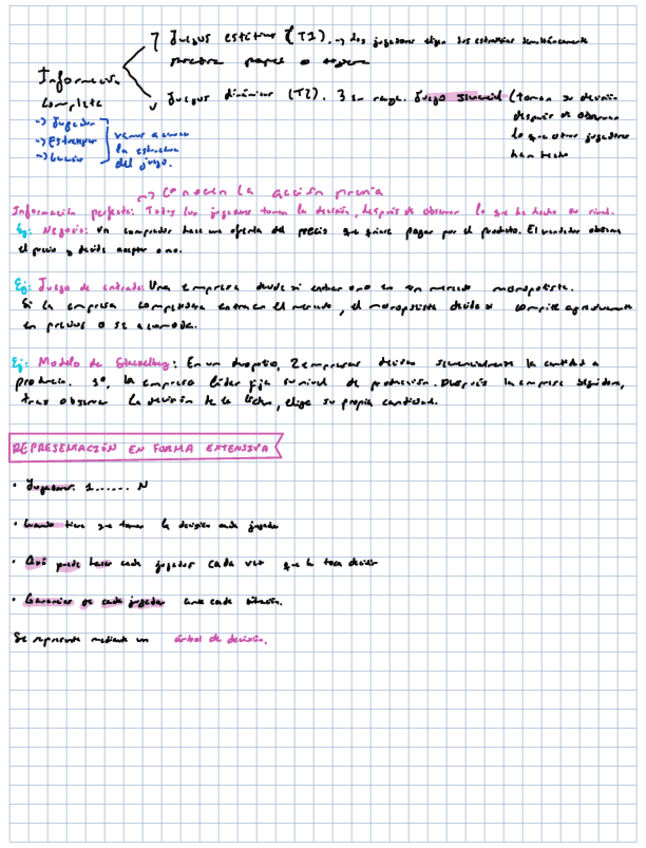 Juegos estáticos (T1). → Los jugadores eligen sus estrategias simultáneamente
piedra papel o tijera
Información
Completa
Juegos dinámicos (T2). 3 en raya. Juego secuencial (toman su decisión
después de observar
lo que otros jugadores
han hecho
→ Jugador
→ Estrategias
→
vemos
la estructura
del juego.
→ Conocen la acción previa
Información perfecta: Todos los jugadores toman la decisión, después de observar lo que ha hecho su rival.
Ej: Negocio: Un comprador hace una oferta del precio que quiere pagar por el producto. El vendedor observa
el precio y decide aceptar o no.
Ej: Juego de entrada: Una empresa decide si entrar o no en un mercado monopolista.
Si la empresa competidora entra en el mercado, el monopolista decide si compite agresivamente
en precios o se acomoda.
Ej: Modelo de Stackelberg: En un duopolio, 2 empresas deciden secuencialmente la cantidad a
producir. 1º, la empresa líder fija su nivel de producción. Después la empresa seguidora,
tras observar la decisión de la líder, elige su propia cantidad.
REPRESENTACIÓN EN FORMA EXTENSIVA
· Jugadores: 1...... N
· Cuando tiene que tomar la decisión cada jugador
· Qué puede hacer cada jugador cada vez que le toca decidir
· Ganancias de cada jugador ante cada situación.
Se representa mediante un árbol de decisión.